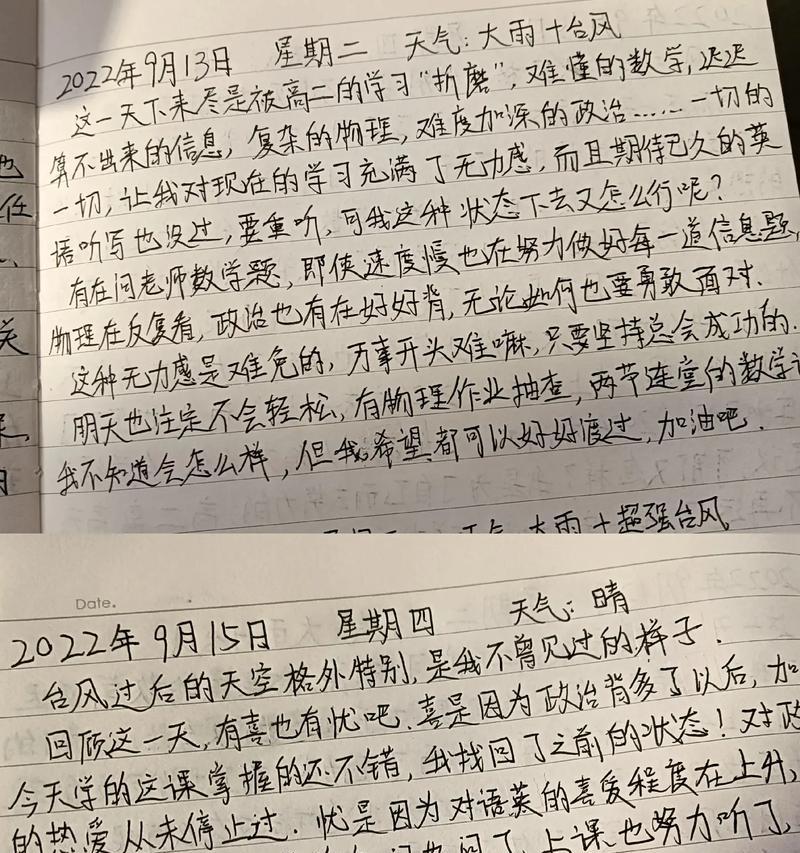 也
任
关
2022年9月13日 星期二 天气：大雨+台风
这一天下来尽是被高二的学习"折磨"，难懂的数学，迟迟
算不出来的信息，复杂的物理，难度加深的政治……一切的
一切，让我对现在的学习充满了无力感，而且期待已久的英
语听写也没过，要重听，可我这种状态下去又怎么行呢？
有在问老师数学题，即使速度慢也在努力做好每一道信息题，
物理在反复看，政治也有在好好背，无论如何也要勇敢面对．
这种无力感是难免的，万事开头难嘛，只要坚持总会成功的．
明天也注定不会轻松，有物理作业抽查，两节连堂的数学
我不知道会怎么样，但我希望都可以好好渡过，加油吧．
天气：大雨+超强台风
Date.
2022年9月15日 星期四 天气：晴
台风过后的天空格外特别，是我不曾见过的样子．
回顾这一天，有喜也有忧吧．喜是因为政治背多了以后，加
今天学的这课掌握的还不错，我找回了之前的状态！对政
的热爱从未停止过．忧是因为对语英的喜爱程度在上升，
问了，上课也努力听了，